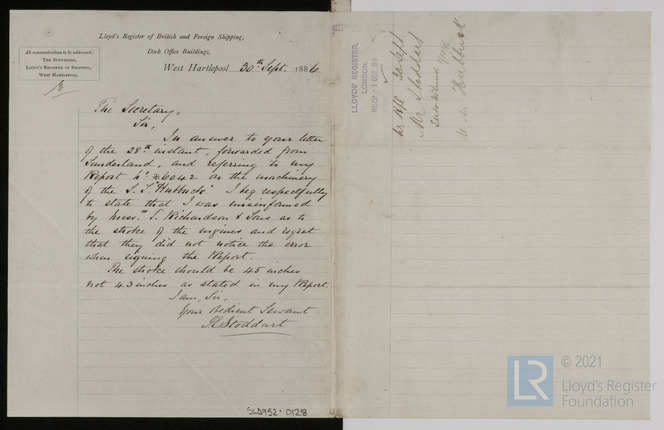 Lloyd's Register of British and Foreign Shipping,
Dock Office Buildings,
West Hartlepool 30th Sept. 1886
All communications to be addressed:
THE SURVEYORS,
LLOYD'S REGISTER OF SHIPPING,
WEST HARTLEPOOL.
The Secretary,
Sir,
In answer to your letter
of the 28th instant, forwarded from
Sunderland, and referring to my
Report No 6042 on the machinery
of the S.S. "Hubbuck" I beg respectfully
to state that I was misinformed
by Messrs T. Richardson & Sons as to
the stroke of the engines and regret
that they did not notice the error
when signing the Report.
The stroke should be 45 inches
not 43 inches as stated in my Report.
I am, Sir,
Your Obedient Servant
Stoddart
SLD952-0128
LLOYDS' REGISTER,
LONDON.
RECD - 1 OCT 86
30 Sept
Mr Stoddart
Hubbuck
LR
© 2021
Lloyd's Register
Foundation